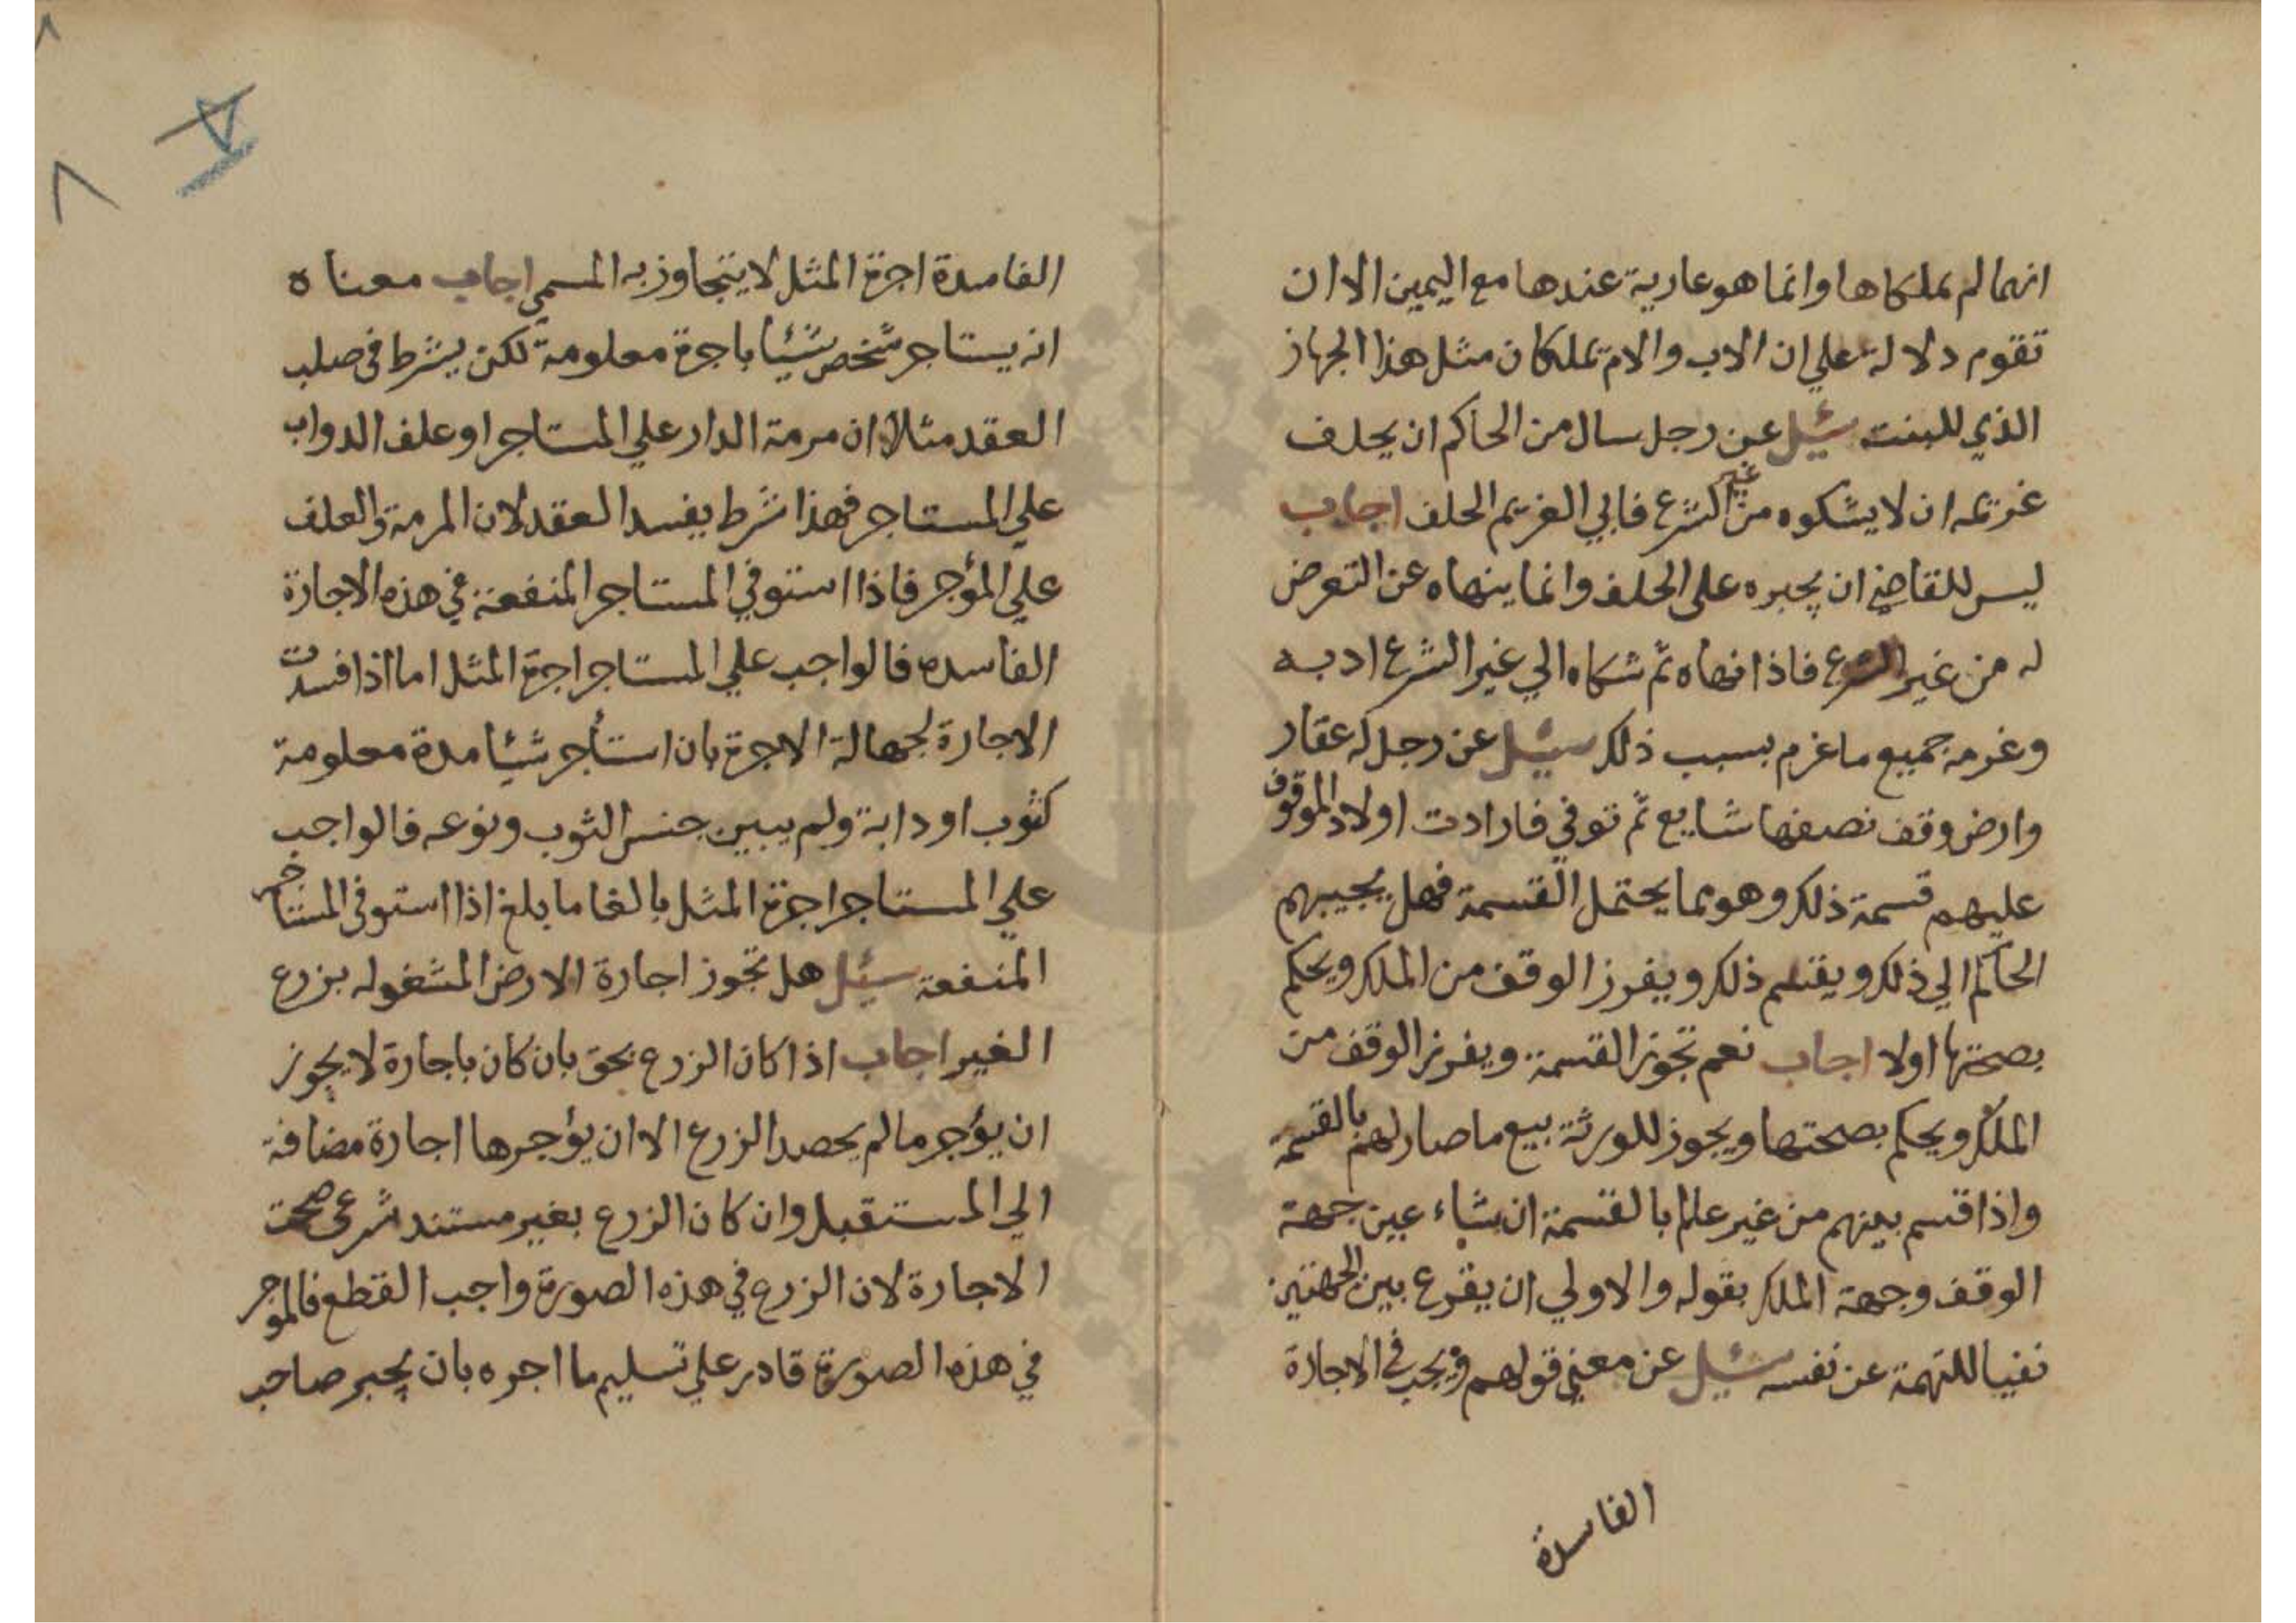 انهما لم يملكاها وانما هو عارية عندها مع اليمين الا ان
تقوم دلالة علي ان الاب والام يملكان مثل هذا الجهاز
الذي للبنت سئل عن رجل سال من الحاكم ان يحلف
غريمه ان لا يشكوه من غير الشرع فابي الغريم الحلف اجاب
ليس للقاضي ان يجبره علي الحلف وانما ينهاه عن التعرض
له من غير الشرع فاذا نهاه ثم شكاه الي غير الشرع ادبه
وغرمه جميع ما غرم بسبب ذلك سئل عن رجل له عقار
وارض وقف نصفها شايع ثم توفي فارادت اولاد الموقوف
عليهم قسمة ذلك وهو مما يحتمل القسمة فهل يجيبهم
الحاكم الي ذلك ويقسم ذلك ويفرز الوقف من الملك ويحكم
بصحتها اولا اجاب نعم تجوز القسمة ويفرز الوقف من
الملك ويحكم بصحتها ويجوز للورثة بيع ما صار لهم بالقسمة
واذا قسم بينهم من غير علم بالقسمة ان شاء عين جهة
الوقف وجهة الملك بقوله والاولي ان يقرع بين الجهتين
نفيا للتهمة عن نفسه سئل عن معني قولهم ويجب في الاجارة
الفاسدة
الفاسدة اجرة المثل لا يتجاوز به المسمي اجاب معناه
انه يستاجر شخص شيئا باجرة معلومة لكن يشرط في صلب
العقد مثلا ان مرمة الدار علي المستاجر او علف الدواب
علي المستاجر فهذا شرط يفسد العقد لان المرمة والعلف
علي المؤجر فاذا استوفي المستاجر المنفعة في هذه الاجارة
الفاسده فالواجب علي المستاجر اجرة المثل اما اذا فسدت
الاجارة لجهالة الاجرة بان استأجر شيئا مدة معلومة
كثوب او دابة ولم يبين جنس الثوب ونوعه فالواجب
علي المستاجر اجرة المثل بالغا ما بلغ اذا استوفي المستاجر
المنفعة سئل هل تجوز اجارة الارض المشغوله بزرع
الغير اجاب اذا كان الزرع بحق بان كان باجارة لا يجوز
ان يؤجر ما لم يحصد الزرع الا ان يؤجرها اجارة مضافة
الي المستقبل وان كان الزرع بغير مستند شرعي صحت
الاجارة لان الزرع في هذه الصورة واجب القطع فالموجر
في هذه الصورة قادر علي تسليم ما اجره بان يجبر صاحب
٨
٨